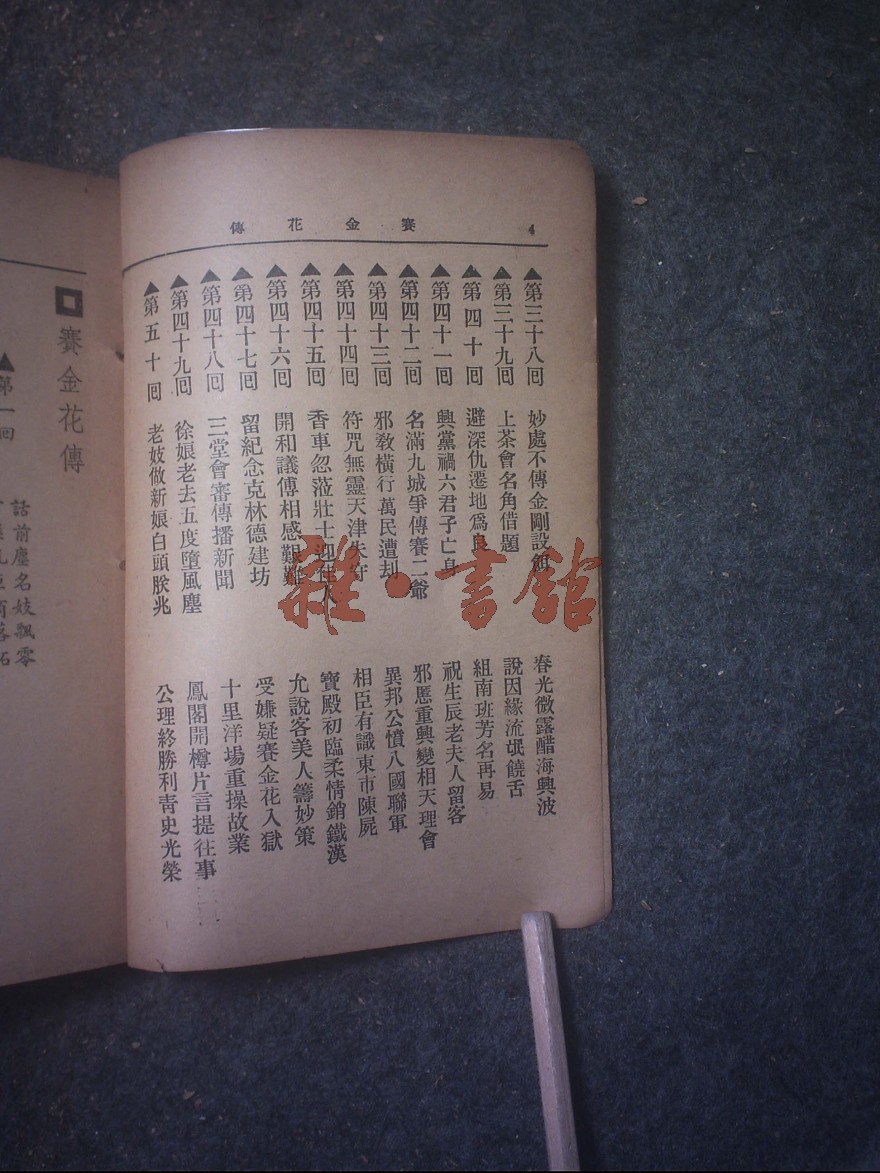 賽金花傳
4
▲第三十八回 妙處不傳金剛設餌 春光微露醋海興波
▲第三十九回 上茶會名角借題 說因緣流氓饒舌
▲第四十回 避深仇遷地爲良 組南班芳名再易
▲第四十一回 興黨禍六君子亡身 祝生辰老夫人留客
▲第四十二回 名滿九城爭傳賽二爺 邪慝重興變相天理會
▲第四十三回 邪教橫行萬民遭刦 異邦公憤八國聯軍
▲第四十四回 符咒無靈天津失守 相臣有識東市陳屍
▲第四十五回 香車忽蒞壯士迎佳人 寶殿初臨柔情銷鐵漢
▲第四十六回 開和議傅相感艱難 允說客美人籌妙策
▲第四十七回 留紀念克林德建坊 受嫌疑賽金花入獄
▲第四十八回 三堂會審傳播新聞 十里洋場重操故業
▲第四十九回 徐娘老去五度墮風塵 鳳閣開樽片言提往事
▲第五十回 老妓做新娘白頭朕兆 公理終勝利靑史光榮
賽金花傳
▲第一回
話前塵名妓飄零
雜·書館